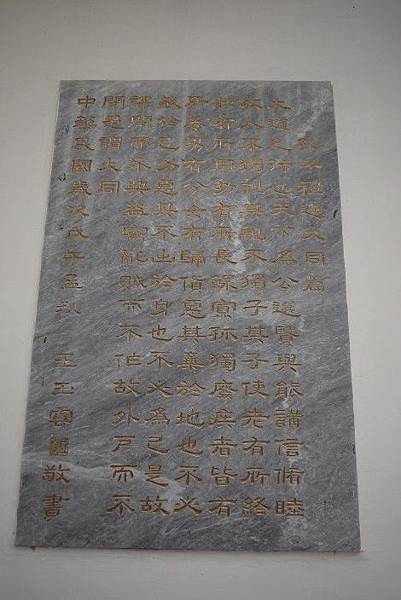 孔子禮運大同篇
大道之行也天下為公選賢與能講信脩睦
故人不獨親其親不獨子其子使老有所終
壯有所用幼有所長鰥寡孤獨廢疾者皆有
所養男有分女有歸貨惡其棄於地也不必
藏於己力惡其不出於身也不必為己是故
謀閉而不興盜竊亂賊而不作故外戶而不
閉是謂大同
中華民國歲次戊午孟秋 王玉雲敬書